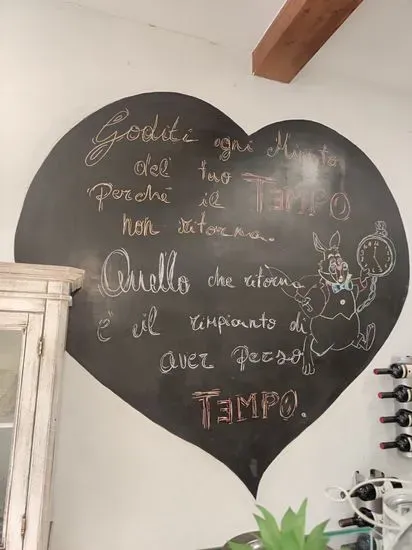 Goditi ogni Minuto
del tuo
Perché il TEMPO
non ritorna.
Quello che ritorna
é il rimpianto di
aver perso
TEMPO.